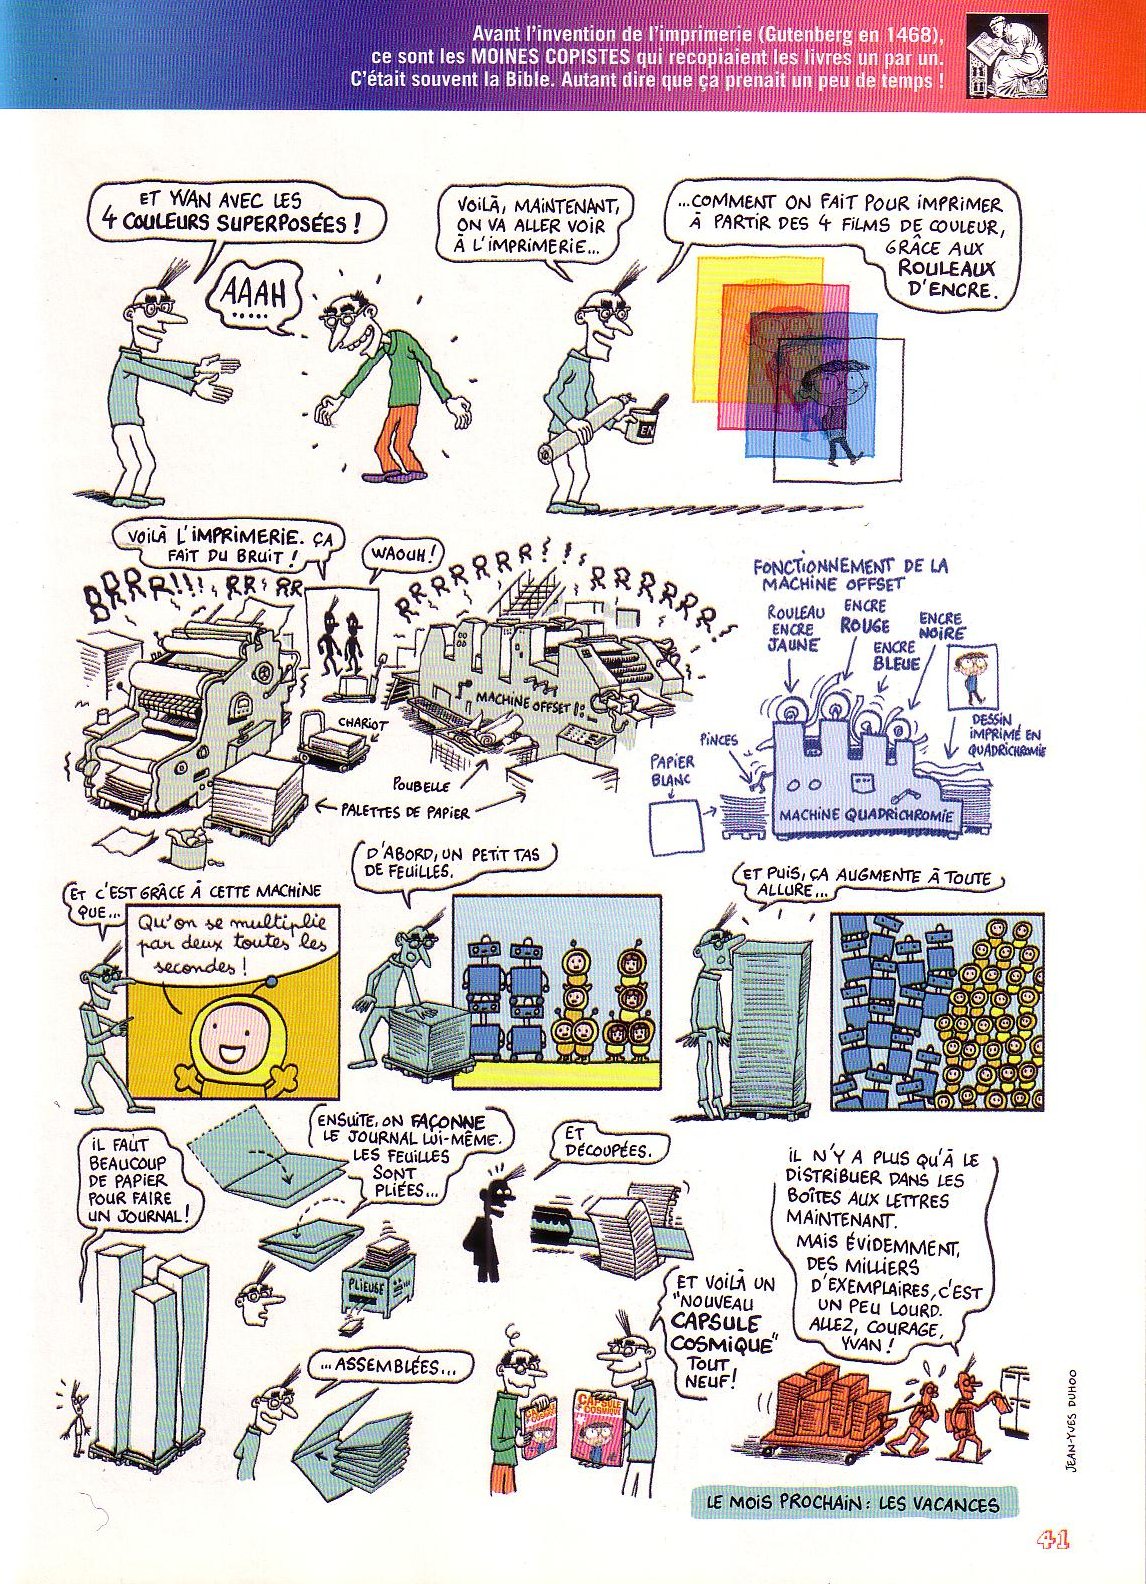 Avant l'invention de l'imprimerie (Gutenberg en 1468),
ce sont les MOINES COPISTES qui recopiaient les livres un par un.
C'était souvent la Bible. Autant dire que ça prenait un peu de temps !
ET YVAN AVEC LES
4 COULEURS SUPERPOSÉES !
AAAH
.....
VOILÀ, MAINTENANT,
ON VA ALLER VOIR
À L'IMPRIMERIE...
...COMMENT ON FAIT POUR IMPRIMER
À PARTIR DES 4 FILMS DE COULEUR,
GRÂCE AUX
ROULEAUX
D'ENCRE.
EN
VOILÀ L'IMPRIMERIE. ÇA
FAIT DU BRUIT !
WAOUH !
BRRR!!! RR RR
RRRRRRR!!! RRRRRR!
MACHINE OFFSET
CHARIOT
POUBELLE
PALETTES DE PAPIER
FONCTIONNEMENT DE LA
MACHINE OFFSET
ROULEAU
ENCRE
JAUNE
ENCRE
ROUGE
ENCRE
BLEUE
ENCRE
NOIRE
PINCES
PAPIER
BLANC
DESSIN
IMPRIMÉ EN
QUADRICHROMIE
MACHINE QUADRICHROMIE
ET C'EST GRÂCE À CETTE MACHINE
QUE...
Qu'on se multiplie
par deux toutes les
secondes !
D'ABORD, UN PETIT TAS
DE FEUILLES.
ET PUIS, ÇA AUGMENTE À TOUTE
ALLURE...
IL FAUT
BEAUCOUP
DE PAPIER
POUR FAIRE
UN JOURNAL !
ENSUITE, ON FAÇONNE
LE JOURNAL LUI-MÊME.
LES FEUILLES
SONT
PLIÉES...
PLIEUSE
ET
DÉCOUPÉES.
...ASSEMBLÉES...
ET VOILÀ UN
"NOUVEAU
CAPSULE
COSMIQUE"
TOUT
NEUF !
CAPSULE
COSMIQUE
IL N'Y A PLUS QU'À LE
DISTRIBUER DANS LES
BOÎTES AUX LETTRES
MAINTENANT.
MAIS ÉVIDEMMENT,
DES MILLIERS
D'EXEMPLAIRES, C'EST
UN PEU LOURD.
ALLEZ, COURAGE,
YVAN !
JEAN-YVES DUHOO
LE MOIS PROCHAIN : LES VACANCES
41